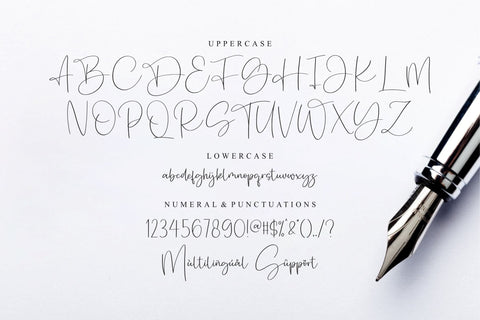 UPPERCASE
ABCDEFGHIJKLM
NOPQRSTUVWXYZ
LOWERCASE
abcdefghijklmnopqrstuvwxyz
NUMERAL & PUNCTUATIONS
1234567890!@#$%^&*()..,/?
Mùltilíngúâl Sùppört